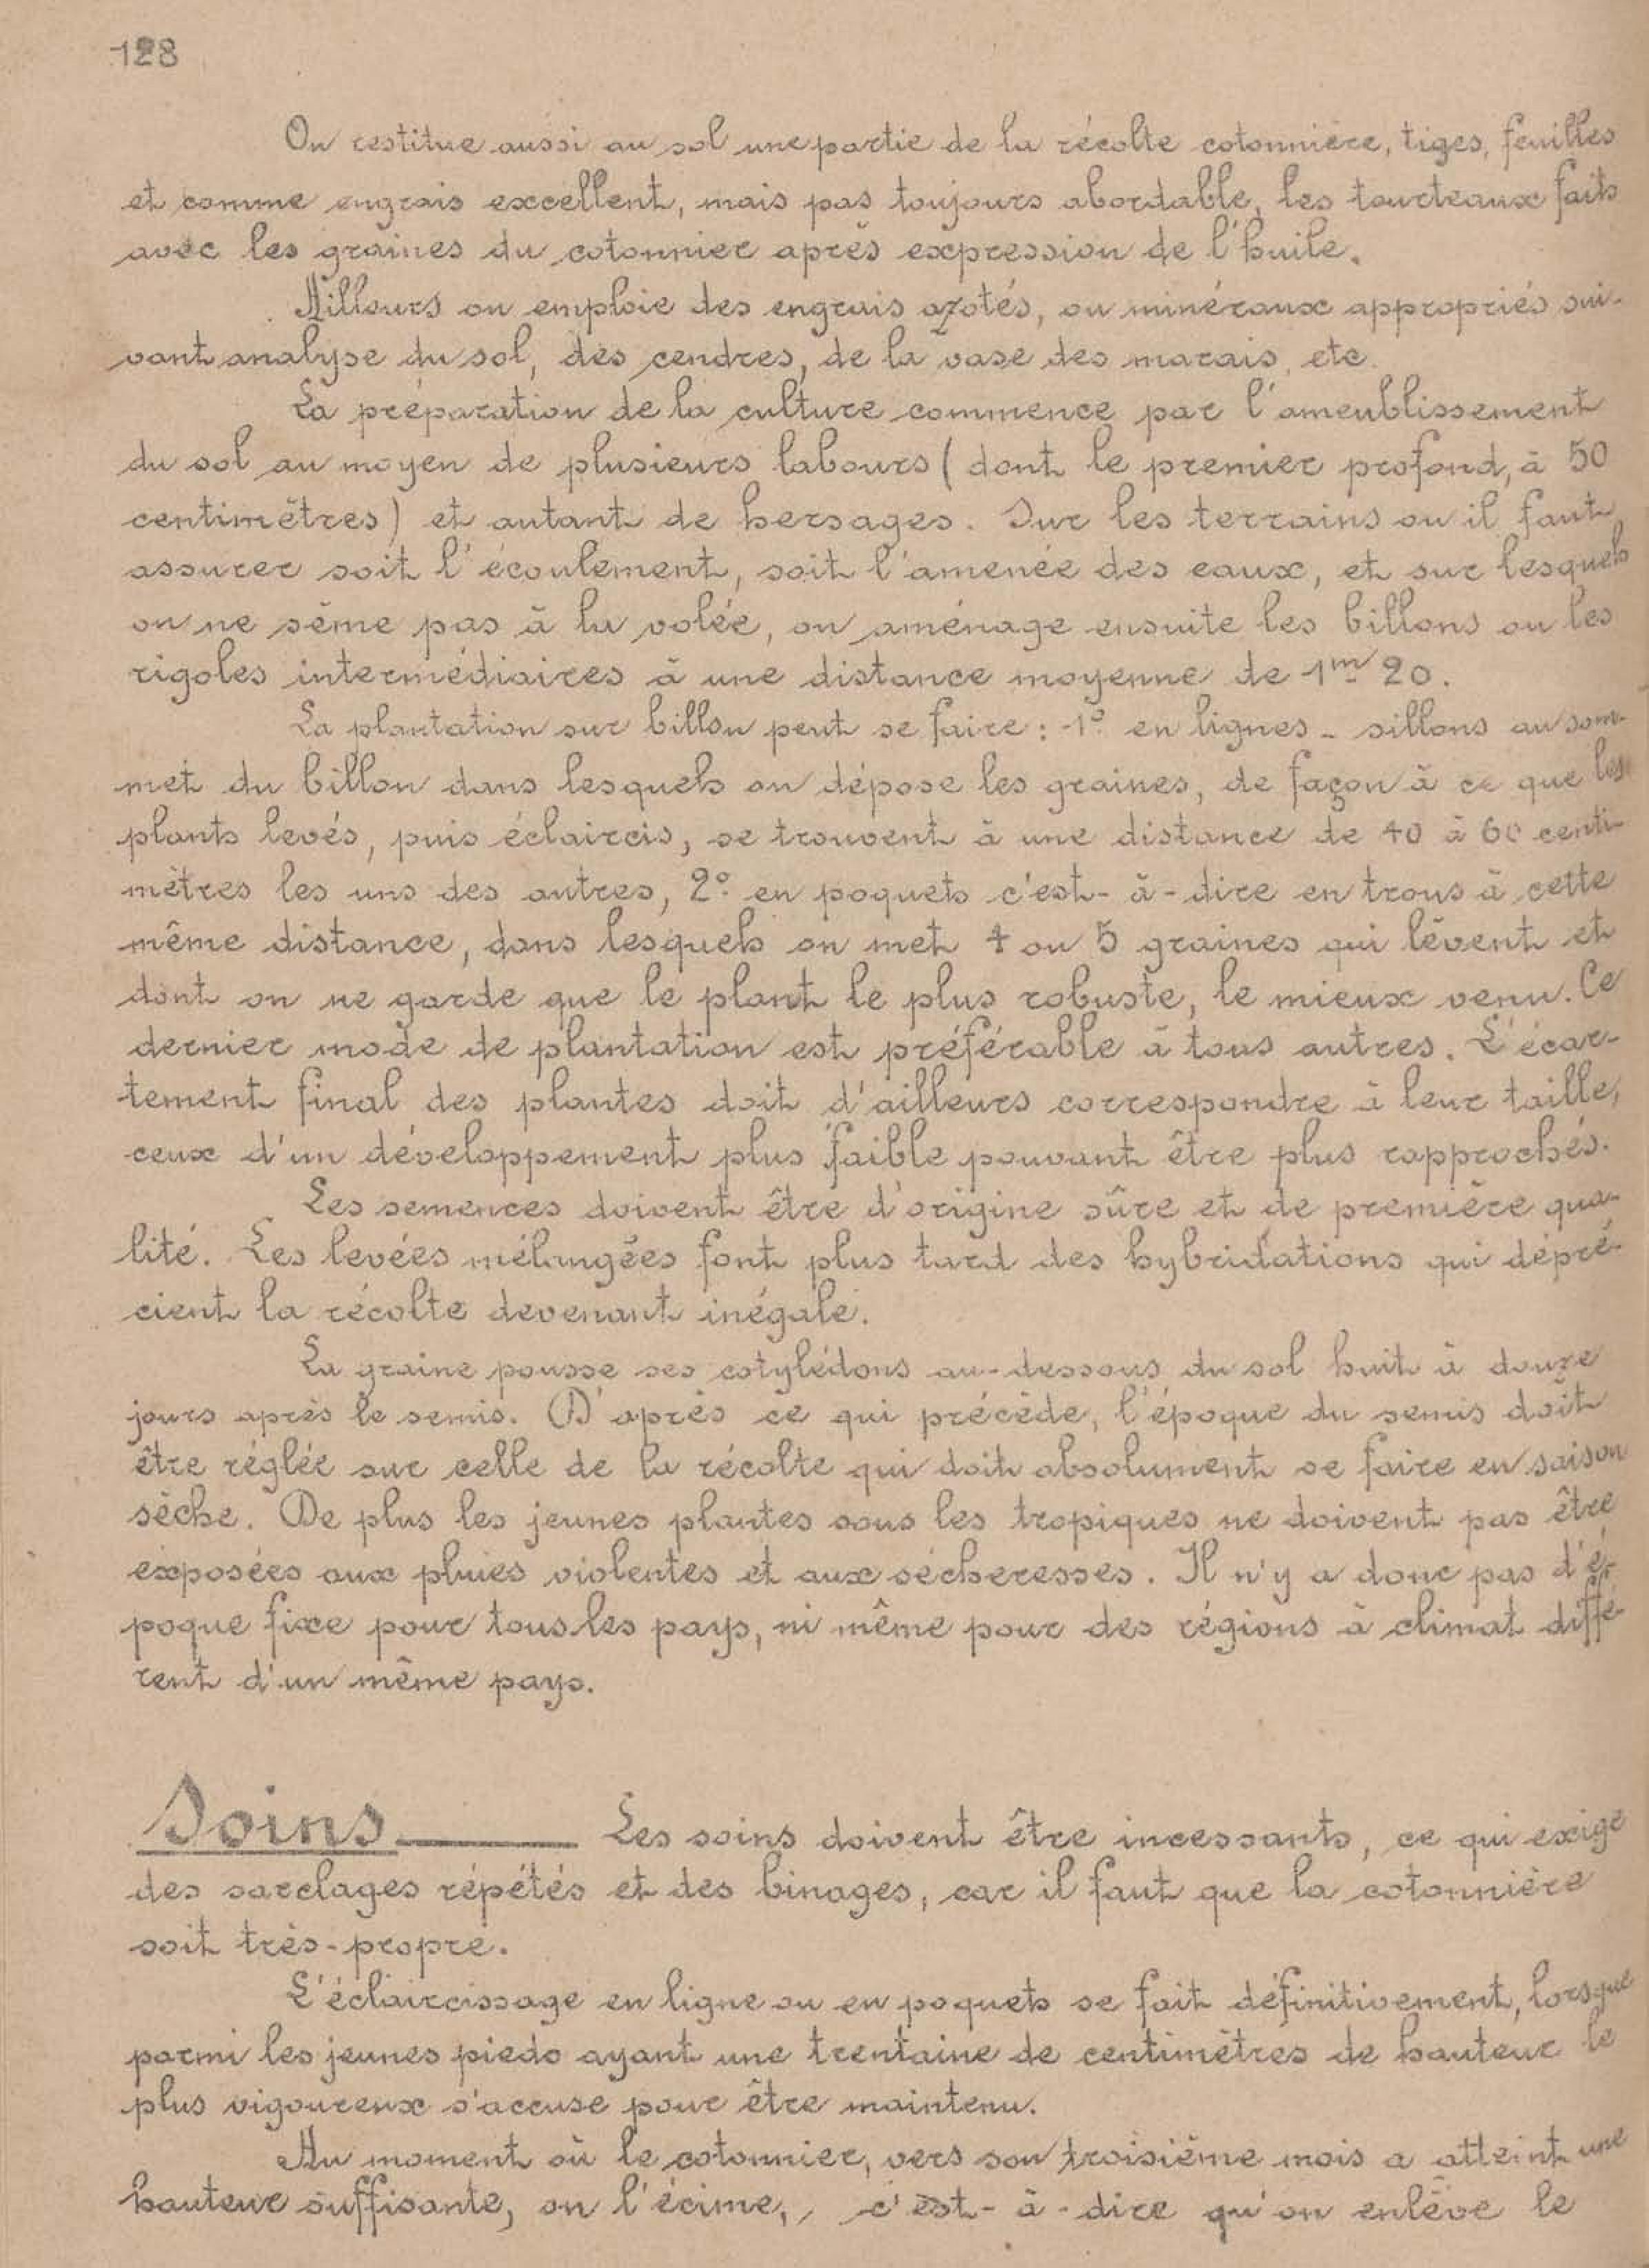 128
On restitue aussi au sol une partie de la récolte cotonnière, tiges, feuilles
et comme engrais excellent, mais pas toujours abordable, les tourteaux faits
avec les graines du cotonnier après expression de l'huile.
Ailleurs on emploie des engrais azotés, ou minéraux appropriés sui-
vant analyse du sol, des cendres, de la vase des marais, etc
La préparation de la culture commence par l'ameublissement
du sol au moyen de plusieurs labours (dont le premier profond, à 50
centimètres) et autant de hersages. Sur les terrains ou il faut
assurer soit l'écoulement, soit l'amenée des eaux, et sur lesquels
on ne sème pas à la volée, on aménage ensuite les billons ou les
rigoles intermédiaires à une distance moyenne de 1m 20.
La plantation sur billon peut se faire : 1º en lignes - sillons au som-
met du billon dans lesquels on dépose les graines, de façon à ce que les
plants levés, puis éclaircis, se trouvent à une distance de 40 à 60 centi-
mètres les uns des autres, 2º en poquets c'est-à-dire en trous à cette
même distance, dans lesquels on met 4 ou 5 graines qui lèvent et
dont on ne garde que le plant le plus robuste, le mieux venu. Ce
dernier mode de plantation est préférable à tous autres. L'écar-
tement final des plantes doit d'ailleurs correspondre à leur taille,
ceux d'un développement plus faible pouvant être plus rapprochés.
Les semences doivent être d'origine sûre et de première qua-
lité. Les levées mélangées font plus tard des hybridations qui dépré-
cient la récolte devenant inégale.
La graine pousse ses cotylédons au-dessous du sol huit à douze
jours après le semis. D'après ce qui précède, l'époque du semis doit
être réglée sur celle de la récolte qui doit absolument se faire en saison
sèche. De plus les jeunes plantes sous les tropiques ne doivent pas être
exposées aux pluies violentes et aux sécheresses. Il n'y a donc pas d'é-
poque fixe pour tous les pays, ni même pour des régions à climat diffé-
rent d'un même pays.
Soins Les soins doivent être incessants, ce qui exige
des sarclages répétés et des binages, car il faut que la cotonnière
soit très-propre.
L'éclaircissage en ligne ou en poquets se fait définitivement, lorsque
parmi les jeunes pieds ayant une trentaine de centimètres de hauteur le
plus vigoureux s'accuse pour être maintenu.
Au moment où le cotonnier, vers son troisième mois a atteint une
hauteur suffisante, on l'écime, c'est-à-dire qu'on enlève le